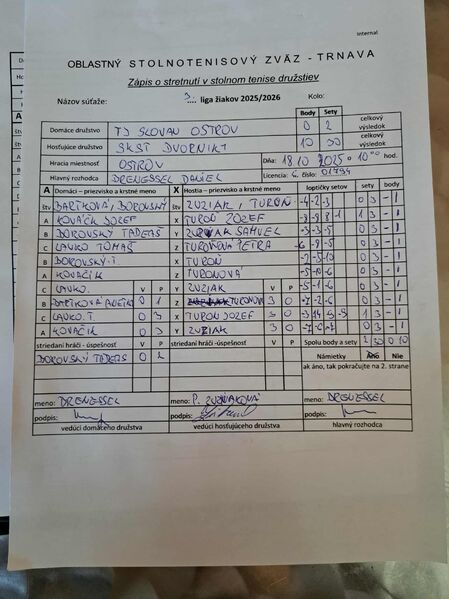 Internal
OBLASTNÝ STOLNOTENISOVÝ ZVÄZ - TRNAVA
Zápis o stretnutí v stolnom tenise družstiev
Názov súťaže: 3. liga žiakov 2025/2026 Kolo:
Body Sety
Domáce družstvo TJ SLOVAN OSTROV 0 2 celkový výsledok
Hosťujúce družstvo SKST DVORNIKY 10 30 celkový výsledok
Hracia miestnosť OSTROV Dňa: 18.10 2025 o 10 00 hod.
Hlavný rozhodca DRENESSEL DANIEL Licencia: č. číslo: 01794
A Domáci – priezvisko a krstné meno X Hostia – priezvisko a krstné meno loptičky setov sety body
štv BARTKOVÁ DOROVSKÝ štv ZUZIAK, TUROŇ -4 -2 -3 0 3 - 1
A KOVAČIK JOZEF X TUROŇ JOZEF
B DOROVSKÝ TADEÁŠ Y SAMUEL -3 -3 -5 0 3 - 1
C LAUKO TOMÁŠ Z TUROŇOVÁ PETRA -6 -8 -5 0 3 - 1
B DOROVSKÝ.T X TUROŇ
A KOVAČIK Z TUROŇOVÁ -5 -10 -6 0 3 - 1
C LAUKO. V P Y ZUZIAK V P
B 0 1 Z TUROŇOVÁ 3 0 -7 -2 -6 0 3 - 1
C LAUKO.T. 0 3 X TUROŇ JOZEF 3 0
A KOVAČIK 0 3 Y ZUZIAK 3 0
striedaní hráči -úspešnosť V P striedaní hráči -úspešnosť V P Spolu body a sety 2 30 0 10
DOROVSKÝ TADEÁŠ 0 2 Námietky Áno Nie
ak áno, tak pokračujte na 2. strane
meno: DRENESSEL meno: P. ZUZIAKOVÁ meno: DRENESSEL
podpis: podpis: podpis:
vedúci domáceho družstva vedúci hosťujúceho družstva hlavný rozhodca